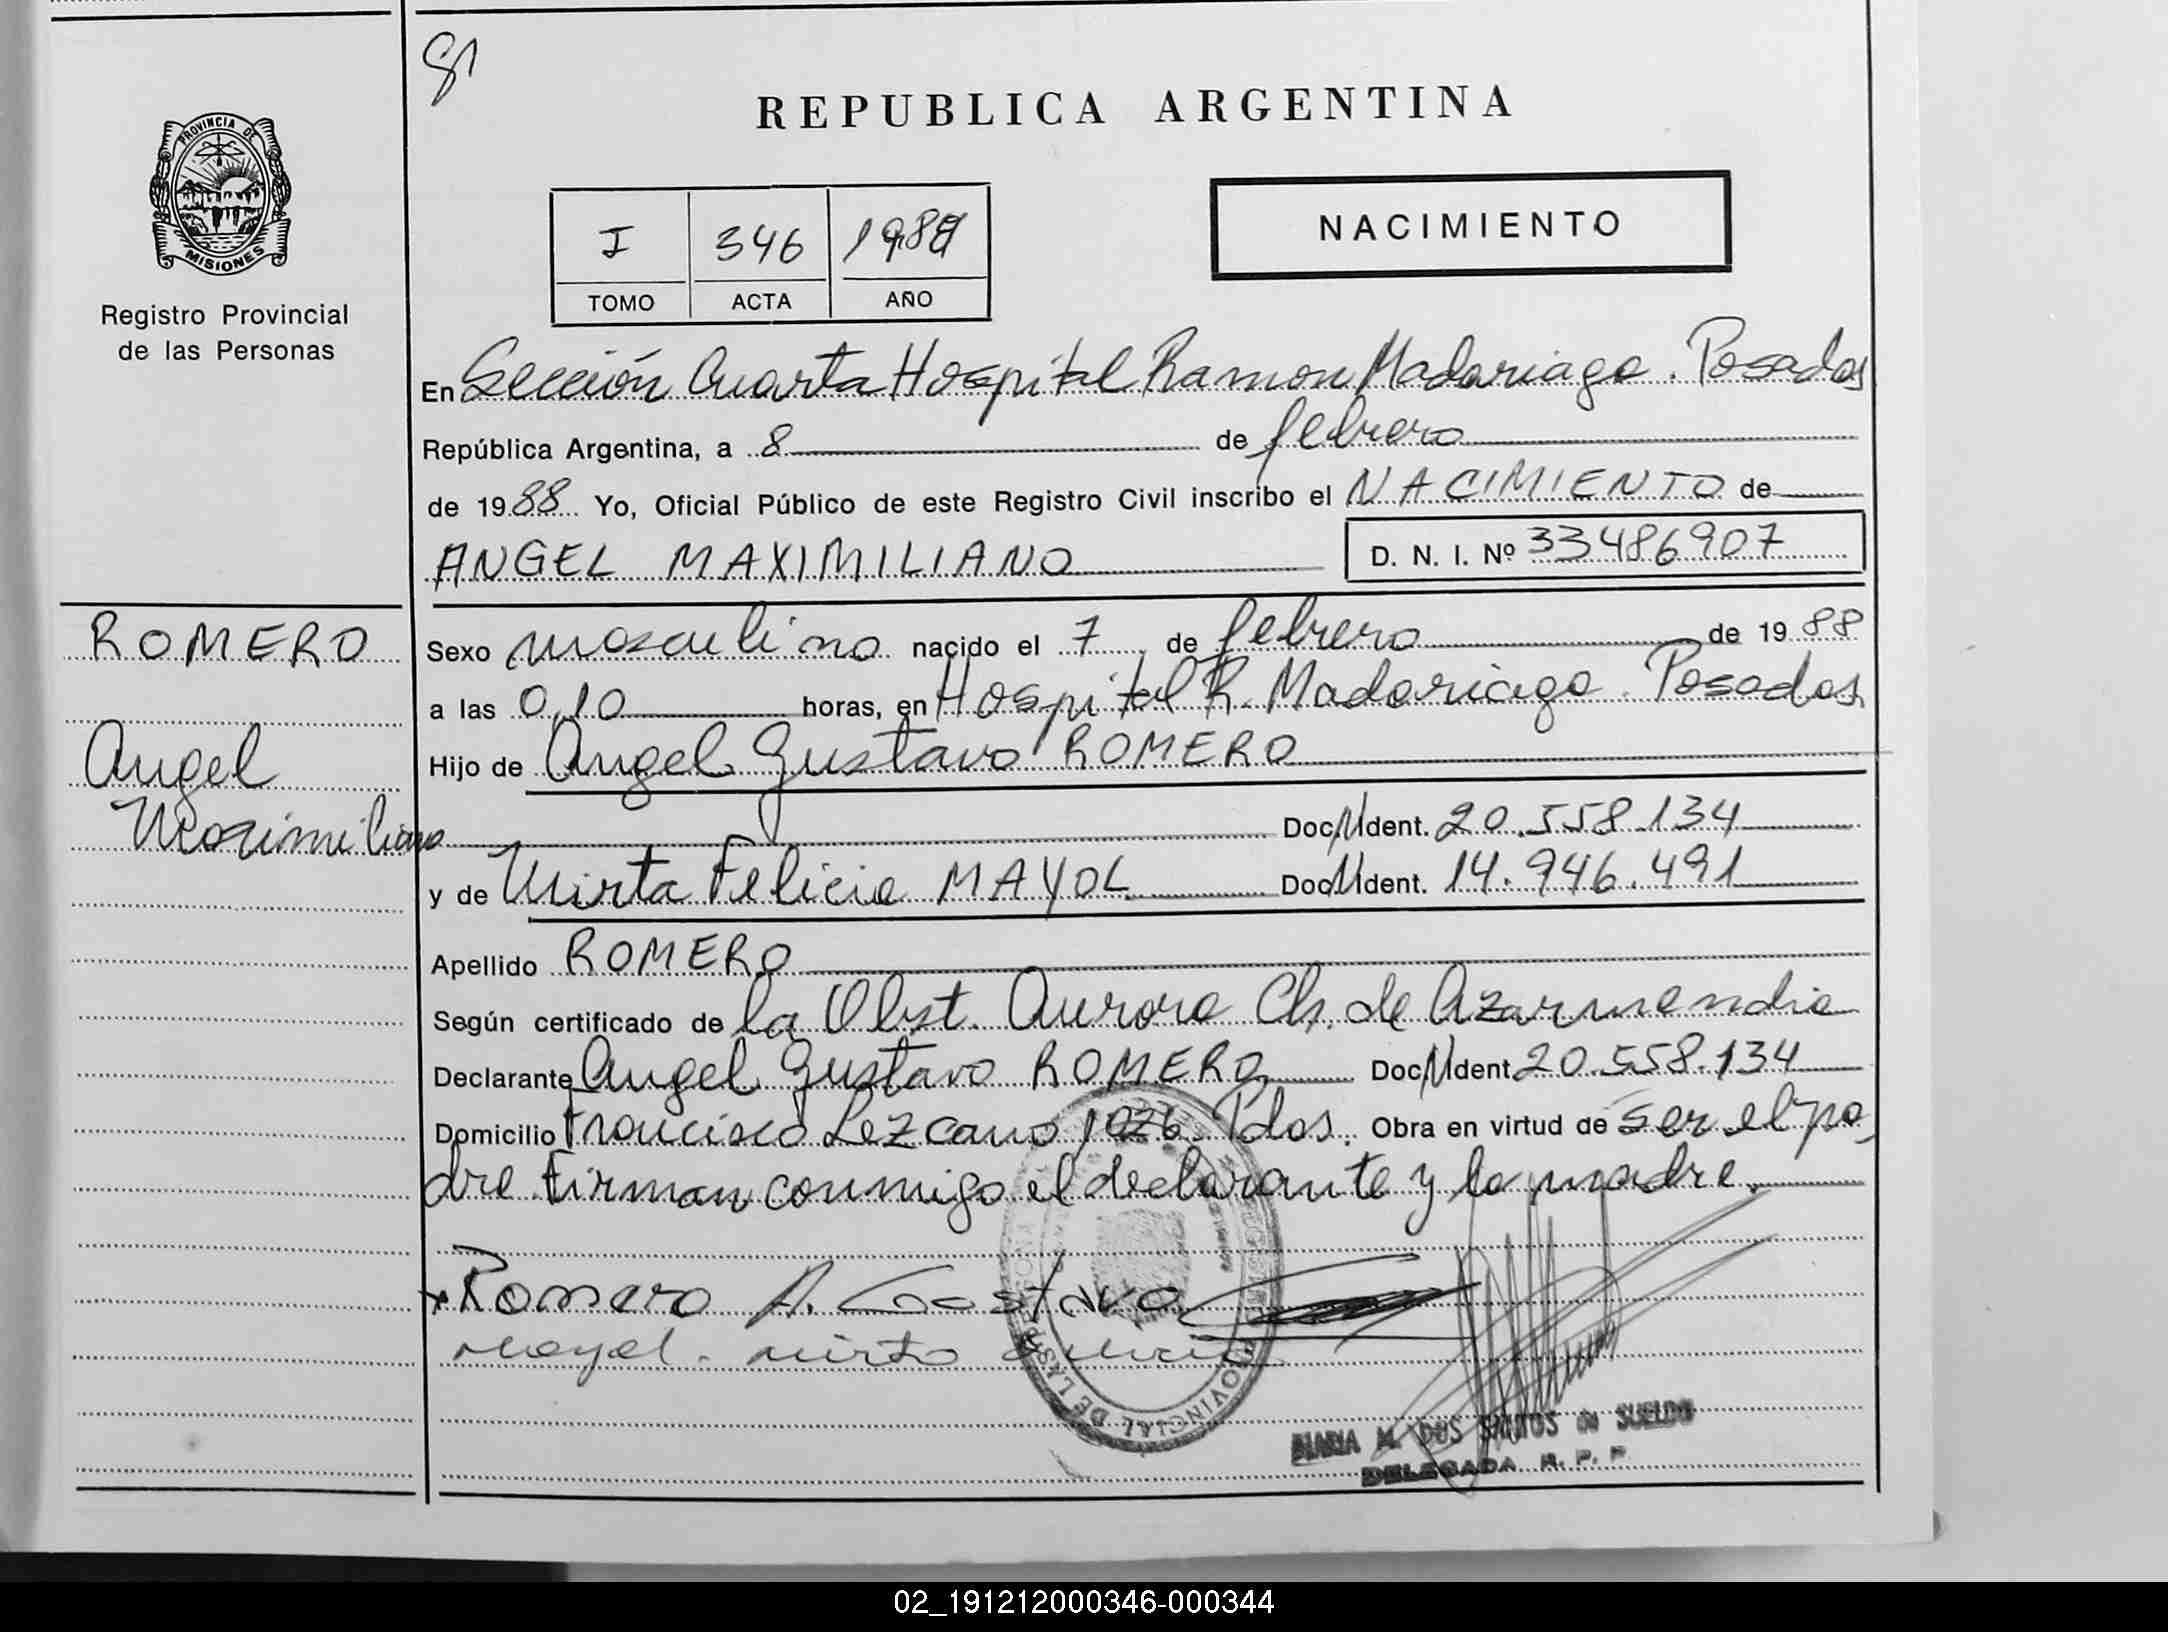 81
REPUBLICA ARGENTINA
PROVINCIA DE
MISIONES
Registro Provincial
de las Personas
I 346
TOMO ACTA AÑO
NACIMIENTO
En Sección Cuarta Hospital Ramon Madariaga. Posadas
República Argentina, a 8 de febrero
de 1988 Yo, Oficial Público de este Registro Civil inscribo el NACIMIENTO de
ANGEL MAXIMILIANO D. N. I. Nº 33486907
ROMERO
Angel
Maximiliano
Sexo masculino nacido el 7 de febrero de 1988
a las 0,10 horas, en Hospital R. Madariaga. Posadas
Hijo de Angel Gustavo ROMERO
Doc. N Ident. 20.558.134
y de Mirta Felicia MAYOL Doc. N Ident. 14.946.491
Apellido ROMERO
Según certificado de la Obst. Aurora Ch. de Azarmendia
Declarante Angel Gustavo ROMERO Doc. N Ident. 20.558.134
Domicilio Francisco Lezcano 1026 Pdas. Obra en virtud de ser el pa
dre. Firman conmigo el declarante y la madre.
Romero A. Gustavo
Mayol. Mirta
PROVINCIAL DE LAS PERSONAS
MARIA M. DOS SANTOS de SUELDO
DELEGADA R. P. P.
02_191212000346-000344